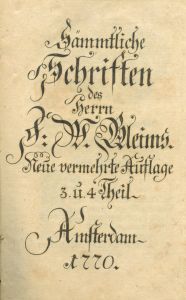 Sämmtliche
Schriften
des
Herrn
F. W. Gleims.
Neüe vermehrte Auflage
3. u. 4 Theil.
Amsterdam
1770.